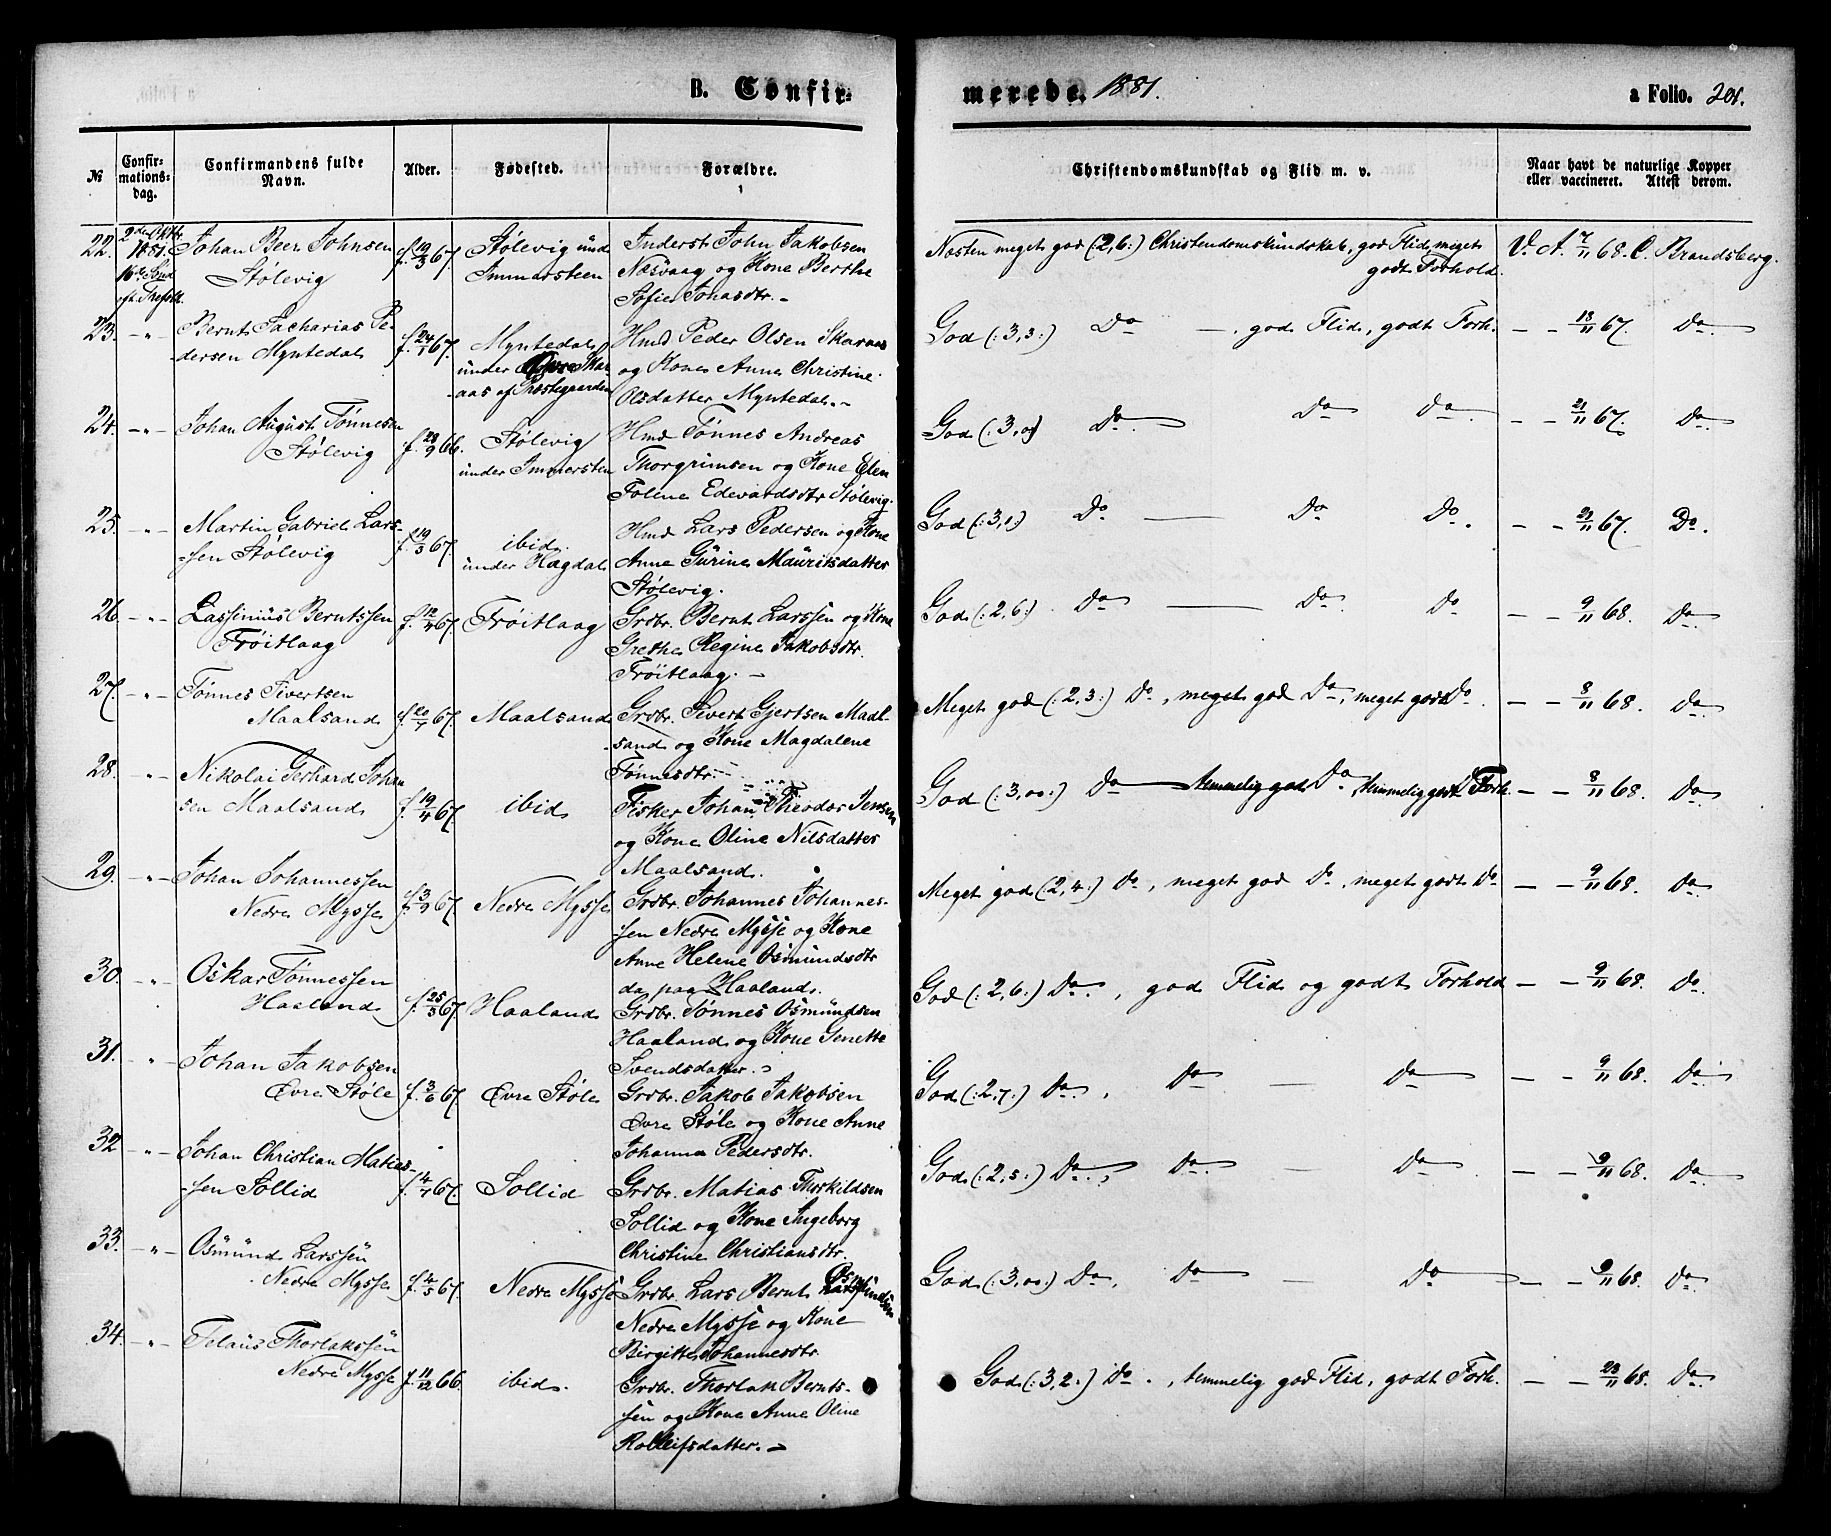 B. Confir-
merede. 1881.
a Folio. 201.
№
Confir-
mations-
dag.
Confirmandens fulde
Navn.
Alder.
Fødested.
Forældre.
Christendomskundskab og Flid m. v.
Naar havt de naturlige Kopper
eller vaccineret. Attest derom.
22. 2den Oktbr. Johan Beer Johnsen f. 19/3 67. Stølevig und Inderst John Jakobsen Næsten meget god (:2,6:) Christendomskundskab, god Flid, meget V. A. 7/11 68. C. Brandsberg.
1881. Stølevig Immersteen Næsvaag og Kone Berthe godt Forhold.
16de Sønd Sofie Jonasdtr.
eft. Trefoldt.
23. -"- Bernt Zacharias Pe- f. 24/1 67. Myntedal Hmd Peder Olsen Skaraas God (:3,3:) Do — , god Flid, godt Forh. — - 13/11 67. Do
dersen Myntedal under Øvre Ska- og Kone Anne Christine
aas af Præstegaarden Olsdatter Myntedal.-
24. -"- Johan August Tønnesen f. 28/9 66. Stølevig Hmd Tønnes Andreas God (:3,0:) Do Do Do — - 21/11 67. Do
Stølevig under Immersten Thorgrimsen og Kone Elen
Toline Edevardsdtr Stølevig.
25. -"- Martin Gabriel Lars- f. 19/3 67. ibid. Hmd Lars Pedersen og Kone God (:3,1:) Do — Do Do. — - 21/11 67. Do.
sen Stølevig under Hagdal Anne Gurine Mauritsdatter
Stølevig.
26. -"- Lassinius Berntssen f. 12/4 67. Frøitlaag Grdbr. Bernt Larssen og Kone God (:2,6:) Do — Do Do — - 9/11 68. Do
Frøitlaag Grethe Regine Jakobsdtr.
Frøitlaag. -
27. -"- Tønnes Sivertsen f. 20/7 67. Maalsand Grdbr. Sivert Gjertsen Maal- Meget god (:2,3:) Do, meget god Do, meget godt Do. — - 8/11 68. Do
Maalsand sand og Kone Magdalene
Tønnesdtr.
28. -"- Nikolai Gerhard Johan f. 19/4 67. ibid Fisker Johan Theodor Jensen God (:3,00:) Do temmelig god Do temmelig godt Forh. — - 8/11 68. Do
sen Maalsand og Kone Oline Nilsdatter
Maalsand.
29. -"- Johan Johannessen f. 3/9 67. Nedre Mysse Grdbr. Johannes Johannes- Meget god (2,4:) Do, meget god Do, meget godt Do — - 9/11 68. Do
Nedre Mysse sen Nedre Mysse og Kone
Anne Helene Osmundsdtr
da paa Haaland.
30. -"- Oskar Tønnessen f. 25/3 67. Haaland Grdbr. Tønnes Osmundsen God (:2,6:) Do, god Flid og godt Forhold — - 9/11 68. Do
Haaland Haaland og Kone Genette
Svendsdatter.
31. -"- Johan Jakobsen f. 3/6 67. Øvre Støle Grdbr. Jakob Jakobsen God (:2,7:) Do, Do — Do — - 9/11 68. Do
Øvre Støle Øvre Støle og Kone Anne
Johanna Pedersdtr.
32 -"- Johan Christian Matias- f. 4/7 67. Sollid Grdbr. Matias Thorkildsen God (:2,5:) Do, Do — Do — - 9/11 68. Do
sen Sollid Sollid og Kone Ingeborg
Christine Christiansdtr.
33. -"- Osmund Larssen f. 4/5 67. Nedre Mysse Grdbr. Lars Bernt Osmundsen God (:3,00:) Do, Do — Do — - 9/11 68. Do
Nedre Mysse Nedre Mysse og Kone
Birgitte Johannesdtr.
34. -"- Thorlakssen f. 11/12 66. ibid. Grdbr. Thorlak Bernts- God (:3,2:) Do, temmelig god Flid, godt Forh. — - 23/11 68. Do
Nedre Mysse sen og Kone Anne Oline
Rolleifsdatter. -